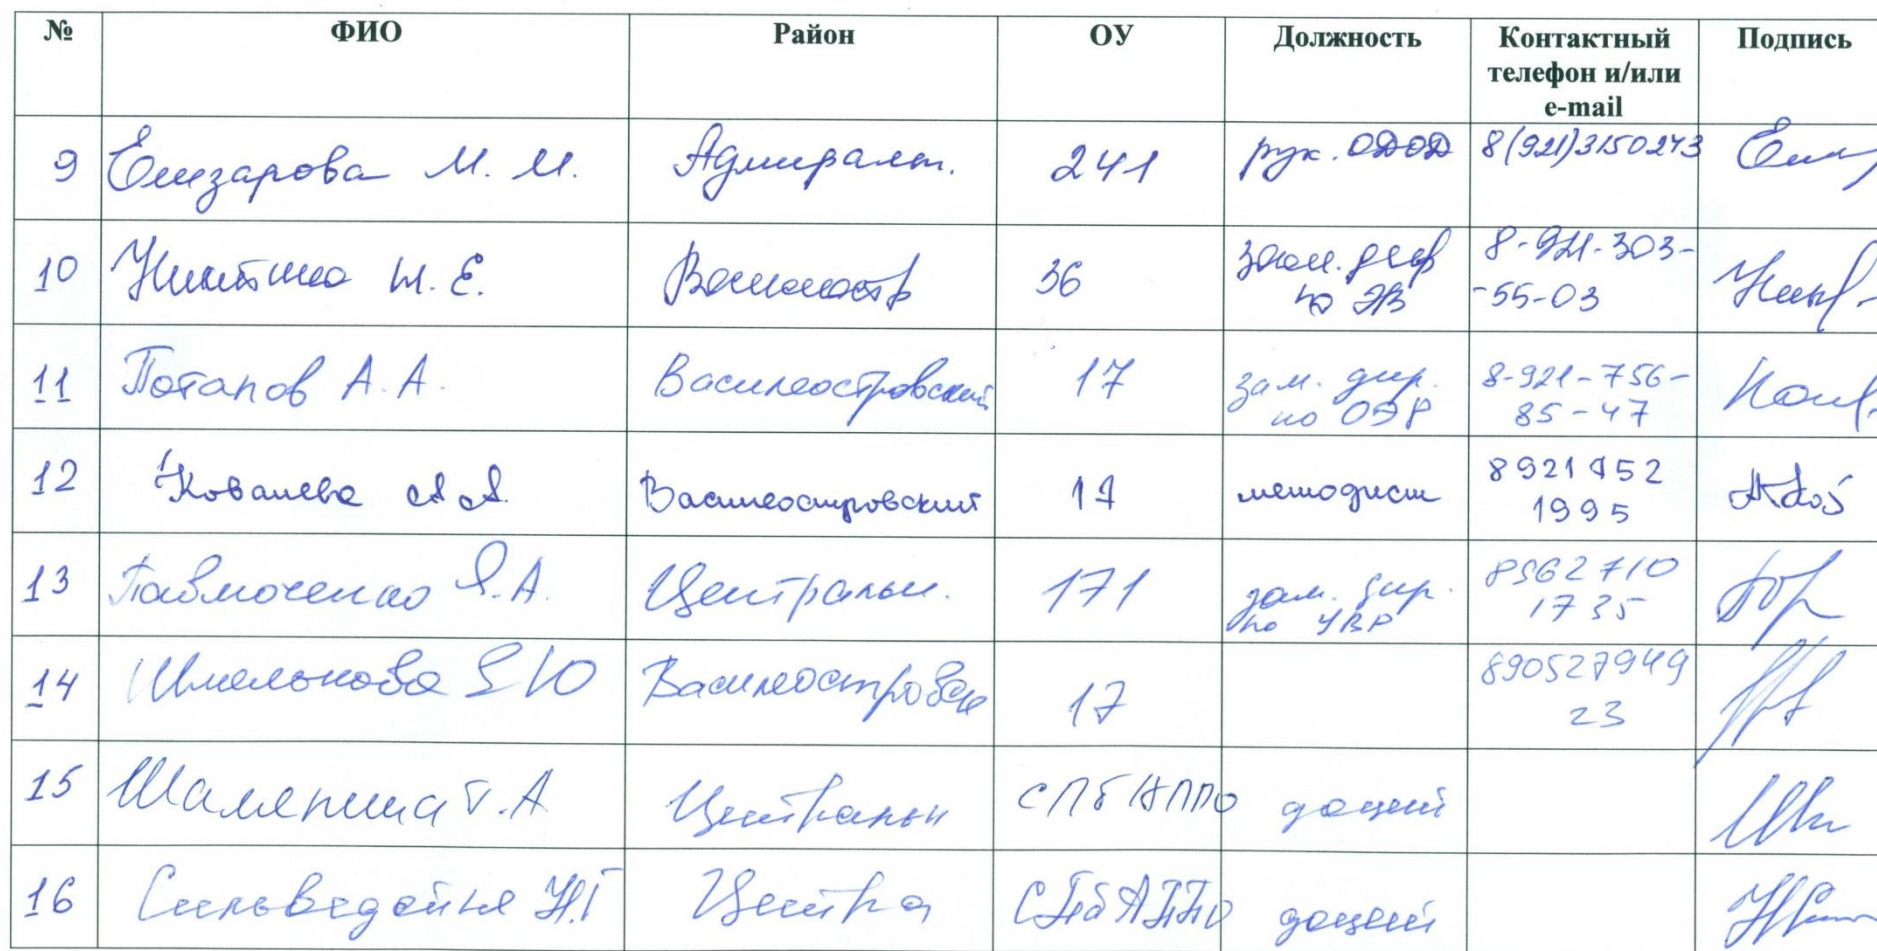 № ФИО Район ОУ Должность Контактный Подпись
телефон и/или
e-mail
9 Елизарова М. М. Адмиралт. 241 рук. ОДОД 8(921)3150243
10 Никитина Н. Е. Василеостр 36 зам. дир 8-921-303-
по ЭВ -55-03
11 Потапов А. А. Василеостровский 17 зам. дир. 8-921-756-
по ОЭР 85-47
12 Ковалева А А. Василеостровский 17 методист 8921 952
1995
13 Я. А. Центральн. 171 зам. дир. 8962710
по УВР 1735
14 Шмелькова Ю Василеостровск 17 890527949
23
15 Т. А Центральн СПб АППО доцент
16 Н.Г Центра СПб АППО доцент